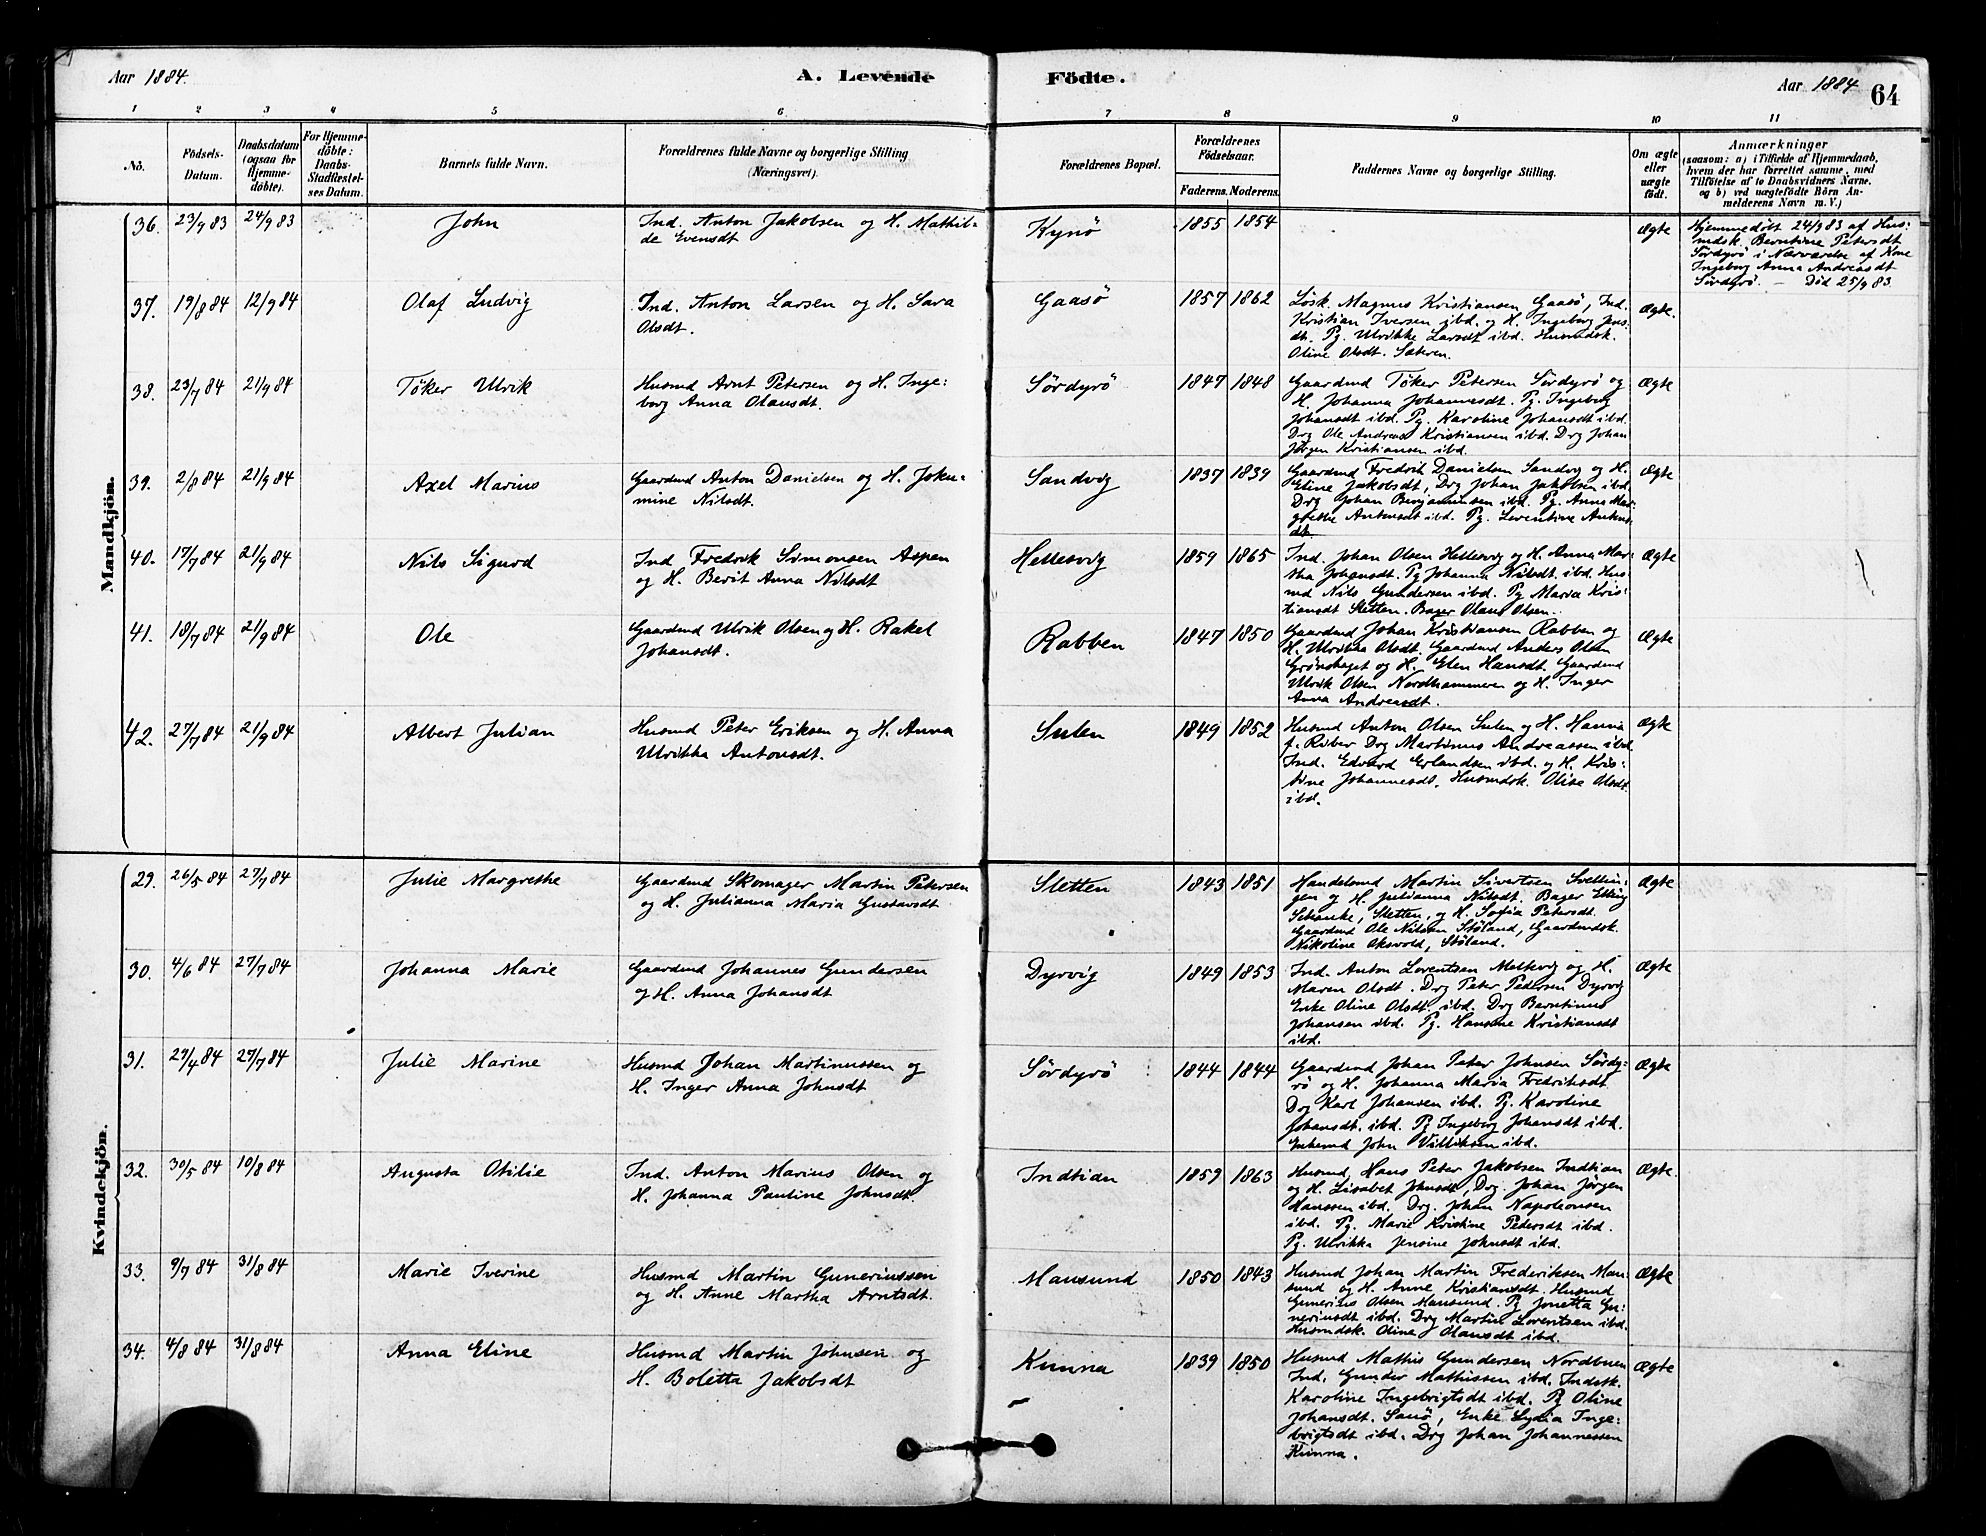 Aar 1884.
A. Levende Födte.
Aar 1884
64
1 2 3 4 5 6 7 8 9 10 11
No.
Födsels-
Datum.
Daabsdatum
(ogsaa for
Hjemme-
döbte).
For Hjemme-
döbte:
Daabs-
Stadfæstel-
ses Datum.
Barnets fulde Navn.
Forældrenes fulde Navne og borgerlige Stilling
(Næringsvei).
Forældrenes Bopæl.
Forældrenes
Födselsaar.
Faderens. Moderens.
Faddernes Navne og borgerlige Stilling.
Om ægte
eller
uægte
födt.
Anmærkninger
(saasom: a) i Tilfælde af Hjemmedaab,
hvem der har forrettet samme, med
Tilföielse af to Daabsvidners Navne,
og b) ved uægtefödte Börn An-
melderens Navn m. V.)
Mandkjön.
36. 23/9 83 24/9 83 John
Ind. Anton Jakobsen og H. Mathil-
de Evensdt
Kynö 1855 1854 Ægte
Hjemmedøbt 24/9 83 af Hus-
mdsk. Berntine Petersdt
Sördyrö i Nærværelse af Kone
Ingeborg Anna Andreasdt
Sördyrö. — Död 25/9 83.
37. 19/8 84 12/9 84 Olaf Ludvig
Ind. Anton Larsen og H. Sara
Olsdt.
Gaasö 1857 1862
Løsk. Magnus Kristiansen Gaasö, Ind.
Kristian Iversen ibd. og H. Ingeborg Jens-
dt. Pg. Ulrikke Larsdt ibd. Husmdsk.
Oline Olsdt. Sæteren.
Ægte.
38. 23/7 84 21/9 84 Töker Ulrik
Husmd Arnt Petersen og H. Inge-
borg Anna Olausdt.
Sördyrö 1847 1848
Gaardmd Töker Petersen Sördyrö og
H. Johanna Johannesdt. Pg. Ingeborg
Johansdt ibd. Pg. Karoline Johansdt ibd.
Drg Ole Andreas Kristiansen ibd. Drg Johan
Jörgen Kristiansen ibd.
Ægte
39. 2/8 84 21/9 84 Axel Marius
Gaardmd Anton Danielsen og H. Joku-
mine Nilsdt
Sandvig 1837 1839
Gaardmd Fredrik Danielsen Sandvg og H.
Eline Jakobsdt, Drg Johan Jakobsen ibd.
Drg Johan Benjaminsen ibd. Pg. Anna Mar-
grethe Antonsdt ibd. Pg. Leventine Antons-
dt.
Ægte
40. 17/7 84 21/9 84 Nils Sigurd
Ind Fredrik Simonsen Aspen
og H. Berit Anna Nilsdt
Hellesvig 1859 1865
Ind. Johan Olsen Hellesvig og H. Anna Mar-
tha Johansdt. Pg Johanna Nilsdt ibd. Hus-
md Nils Gundersen ibd. Pg Maria Kris-
tiansdt Sletten. Bager Olaus Olsen.
Ægte
41. 18/7 84 21/9 84 Ole
Gaardmd Ulrik Olsen og H. Rakel
Johansdt.
Rabben 1847 1850
Gaardmd Johan Kristiansen Rabben og
H. Ulrikka Olsdt. Gaardmd Anders Olsen
Grönskaget og H. Elen Hansdt. Gaardmd
Ulrik Olsen Nordhammeren og H. Inger
Anna Andreasdt.
Ægte
42. 27/7 84 21/9 84 Albert Julian
Husmd Peter Eriksen og H. Anna
Ulrikka Antonsdt.
Sulen 1849 1852
Husmd Anton Olsen Sulen og H. Hanna
f. Riber Drg Martinus Andreassen ibd.
Ind. Edvard Erlandsen ibd. og H. Kris-
tine Johannesdt. Husmdsk. Olise Olsdt
ibd.
Ægte
Kvindekjön.
29. 26/5 84 27/7 84 Julie Margrethe
Gaardmd Skomager Martin Petersen
og H. Julianna Maria Gustavsdt
Sletten 1843 1851
Handelsmd Martin Sivertsen Svellin-
gen og H. Julianna Nilsdt. Bager Elling
Schanke, Sletten, og H. Sofia Petersdt.
Gaardmd Ole Nilsen Stöland, Gaardmdsk.
Nikoline Oksvold, Stöland.
Ægte
30. 4/6 84 27/7 84 Johanna Marie
Gaardmd Johannes Gundersen
og H. Anna Johansdt
Dyrvig 1849 1853
Ind. Anton Lorentsen Melkvig og H.
Maren Olsdt. Drg Peter Pedersen Dyrvig
Enke Oline Olsdt. ibd. Drg Berntinus
Johansen ibd. Pg. Hansine Kristiansdt
ibd.
Ægte
31. 27/4 84 27/7 84 Julie Marine
Husmd Johan Martinussen og
H. Inger Anna Johnsdt
Sördyrö 1844 1844
Gaardmd Johan Peter Johnsen Sördy-
rö og H. Johanna Maria Fredriksdt
Drg Karl Johansen ibd. Pg. Karoline
Johansdt. ibd. Pg Ingeborg Johansdt ibd.
Enkemd John Villiksen ibd.
Ægte
32. 30/5 84 10/8 84 Augusta Otilie
Ind. Anton Marius Olsen og
H. Johanna Pauline Johnsdt.
Indtian 1859 1863
Husmd Hans Peter Jakobsen Indtian
og H. Lisabet Johnsdt, Drg. Johan Jörgen
Hanssen ibd. Drg. Johan Napoleonsen
ibd. Pg. Marie Kristine Pedersdt ibd.
Pg. Ulrikka Jensine Johnsdt ibd.
Ægte.
33. 9/7 84 31/8 84 Marie Iverine
Husmd Martin Gunerinssen
og H. Anne Martha Arntsdt.
Mausund 1850 1843
Husmd Johan Martin Frederiksen Mau-
sund og H. Anne Kristiansdt. Husmd
Gunerius Olsen Mausund. Pg Jonetta Gu-
neriusdt ibd. Drg Martin Lorentsen ibd.
Husmdsk. Oline Olausdt ibd.
Ægte
34. 4/8 84 31/8 84 Anna Eline
Husmd Martin Johnsen og
H. Boletta Jakobsdt
Kunna 1839 1850
Husmd Mathis Gundersen Nordbuen
Ind. Gunder Mathissen ibd. Indsk.
Karoline Ingebrigtsdt ibd. Pg Oline
Johansdt. Sanö, Enke Lydia Inge-
brigtsdt ibd. Drg Johan Johannessen
Kunna.
Ægte